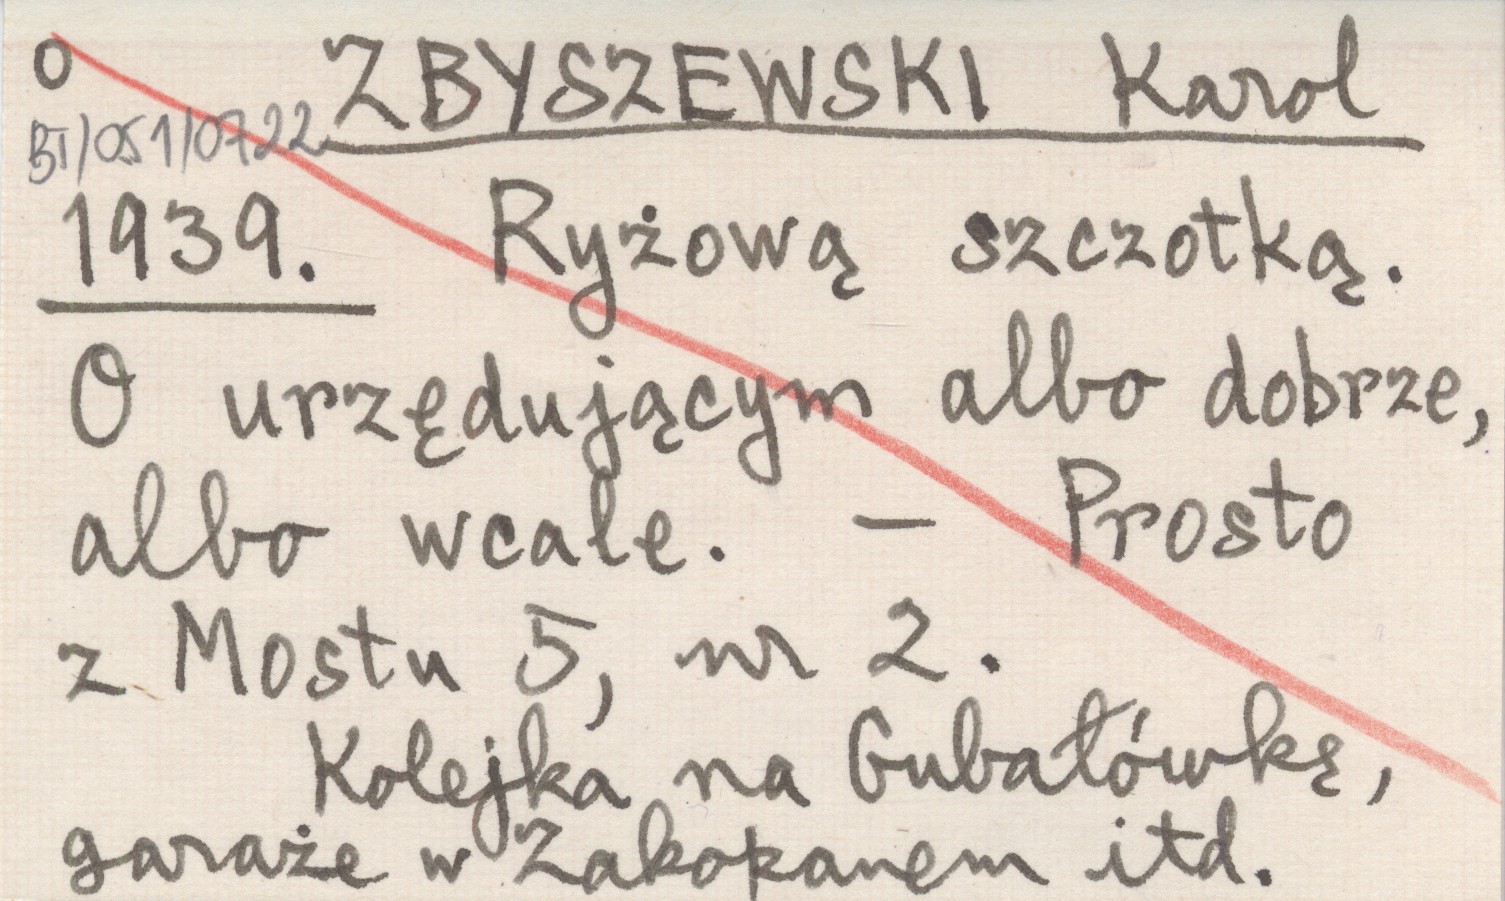 O ZBYSZEWSKI Karol
BI/051/0722
1939. Ryżową szczotką.
O urzędującym albo dobrze,
albo wcale. – Prosto
z Mostu 5, nr 2.
Kolejka na Gubałówkę,
garaże w Zakopanem itd.